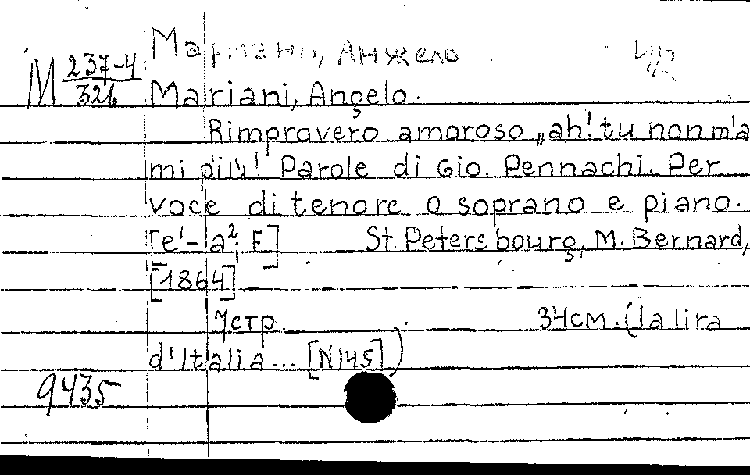 Мариани, Анжело
M 237-4/326
Mariani, Angelo.
Rimprovero amoroso „ah! tu non m'a
mi più!" Parole di Gio. Pennachi. Per
voce di tenore o soprano e piano.
[e¹-a², F.] St. Petersbourg, M. Bernard,
[1864]
7 стр. 34 см. (La lira
d'Italia... [N 145])
9435